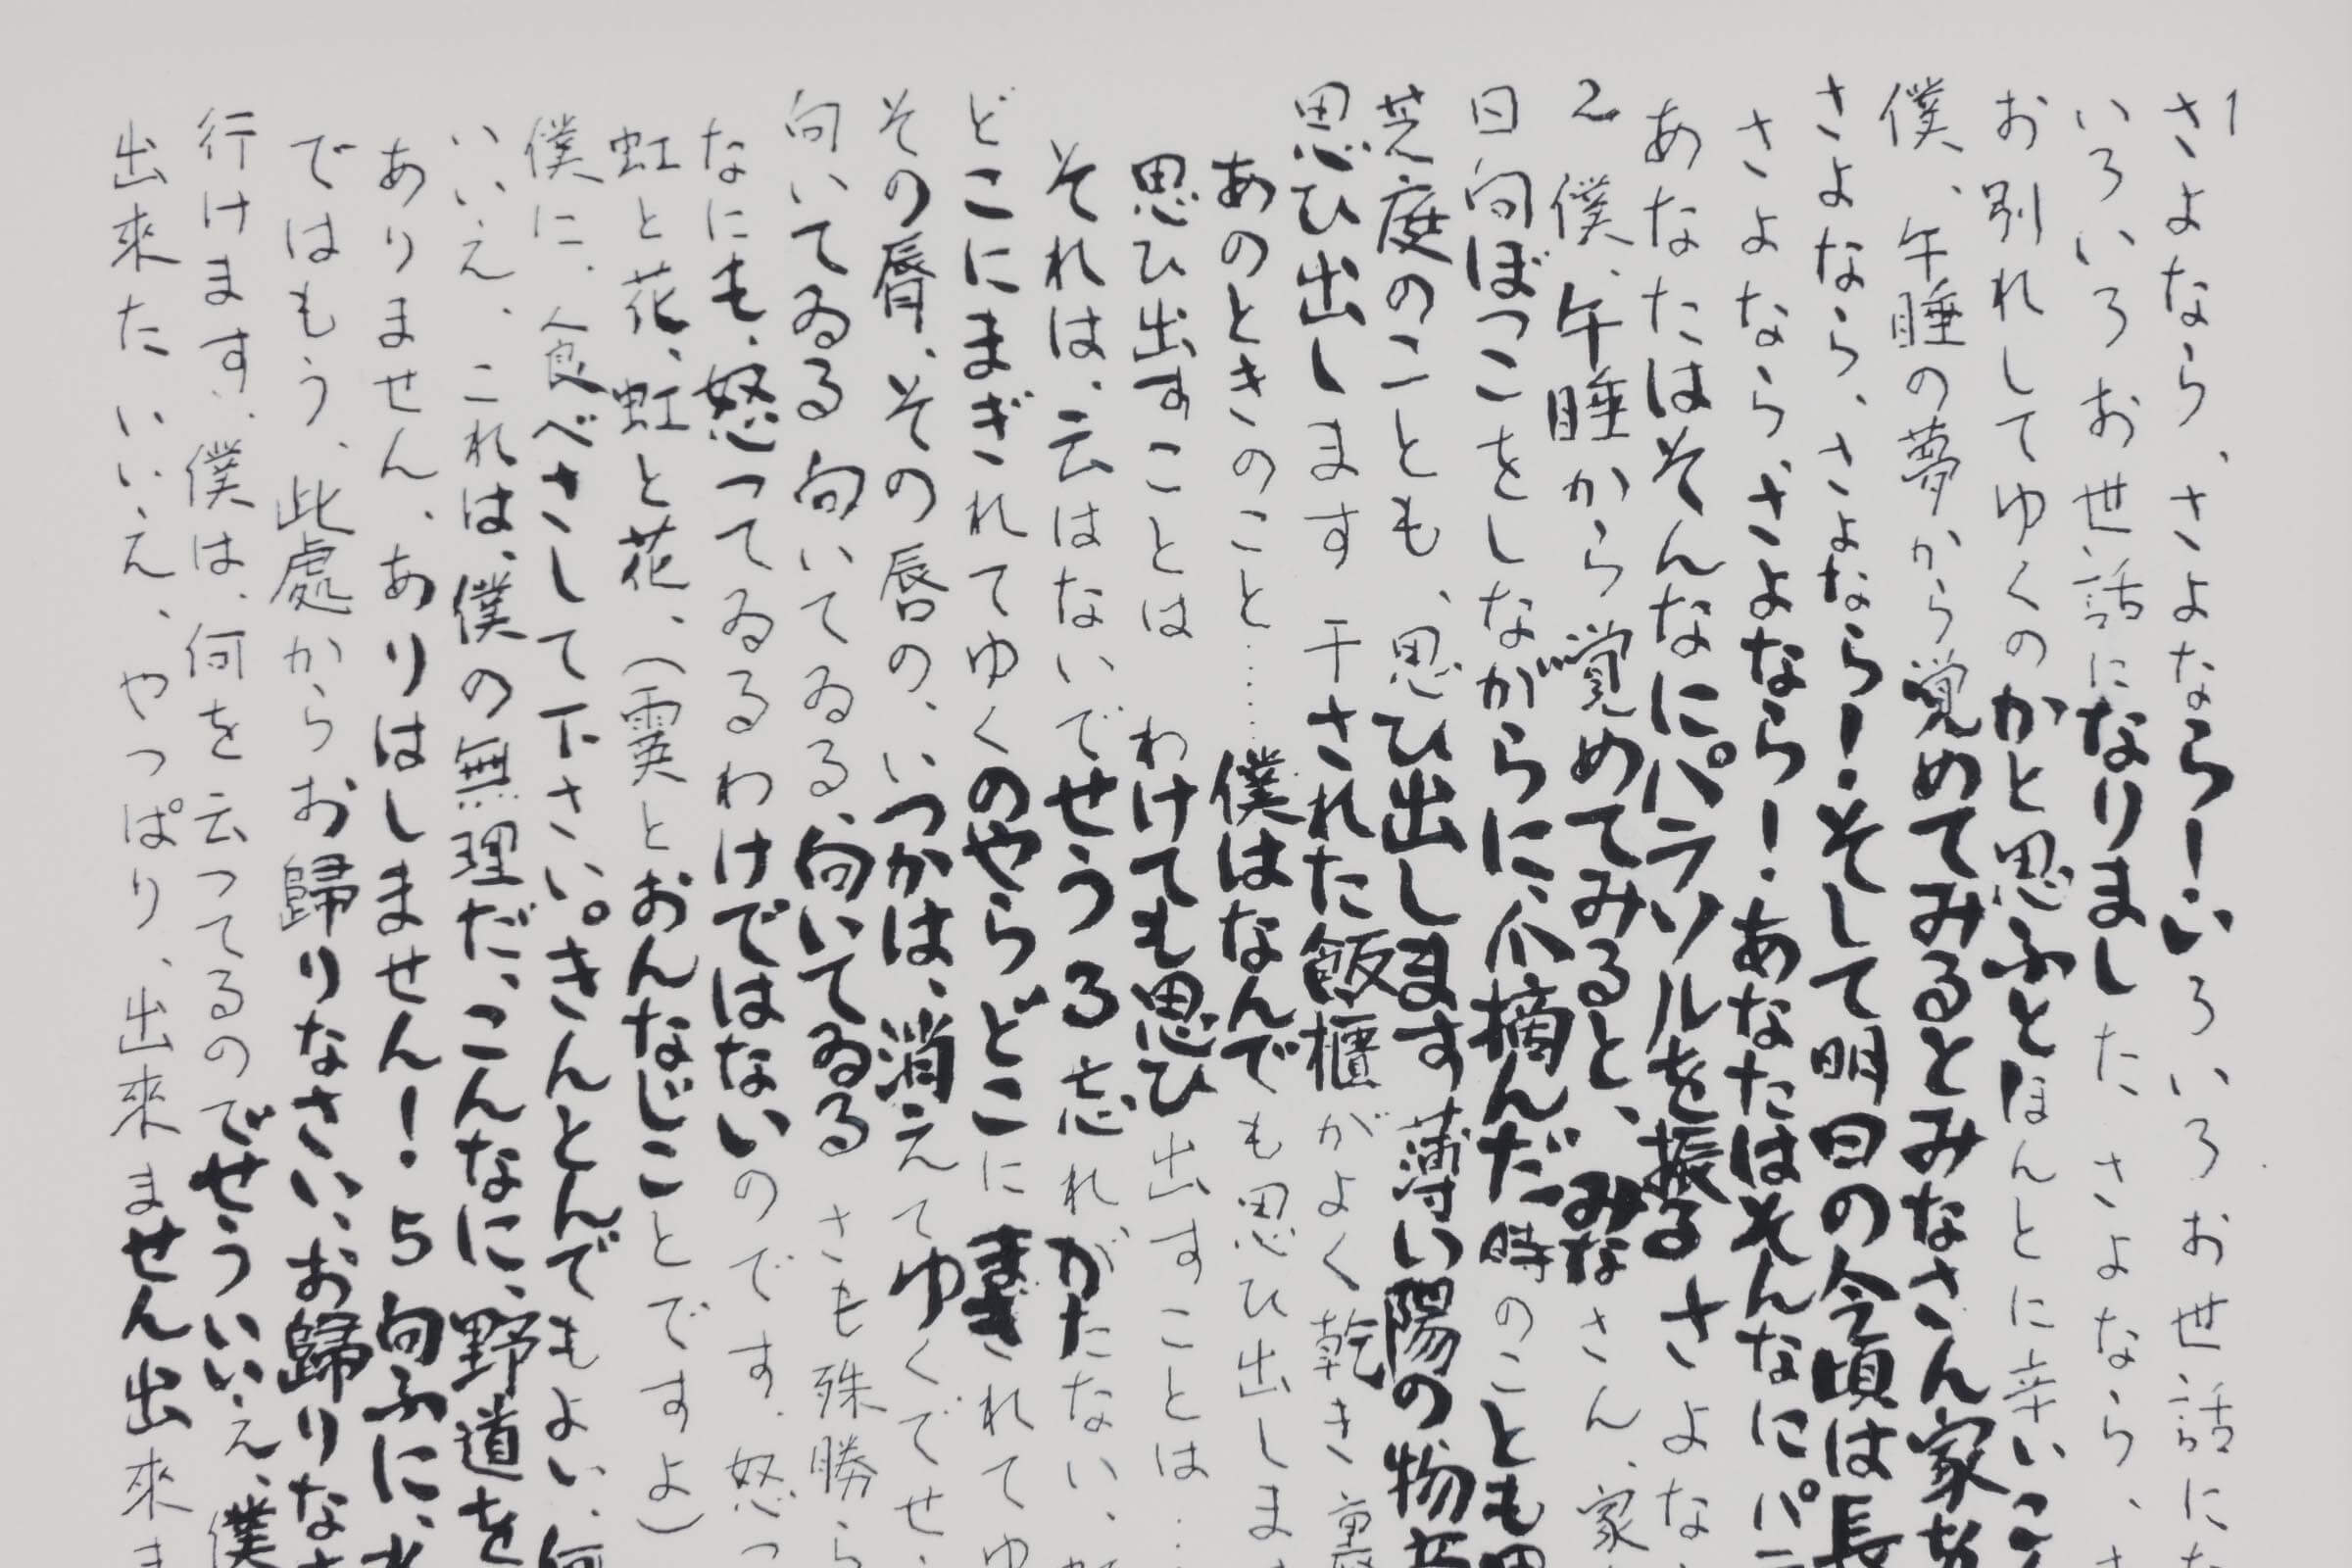 1
さよなら、さよなら!いろいろお世話にな
いろいろお世話になりました さよなら、さ
お別れしてゆくのかと思ふとほんとに辛いこん
僕、午睡の夢から覚めてみるとみなさん家を
さよなら、さよなら!そして明日の今頃は長
さよなら、さよなら!あなたはそんなにパラ
あなたはそんなにパラソルを振る さよな
2 僕、午睡から覚めてみると、みなさん、家
日向ぼつこをしながらに、爪摘んだ時のことも思
芝庭のことも、思ひ出します 薄い陽の物音
思ひ出します 干された飯櫃がよく乾き 裏
あのときのこと……僕はなんでも思ひ出しま
思ひ出すことは わけても思ひ出すことは…
それは、云はないでせう 3 忘れがたない、虹
どこにまぎれてゆくのやらどこにまぎされてゆ
その脣、その唇の、いつかは、消えてゆくでせ
向いてゐる 向いてゐる、向いてゐる さも殊勝ら
なにも、怒つてゐるわけではないのです、怒つ
虹と花、虹と花、(霙とおんなじことですよ)
僕に、食べさして下さい。きんとんでもよい、何
いいえ、これは、僕の無理だ、こんなに、野道を
ありません、ありはしません! 5 向ふに、水
ではもう、此處からお歸りなさい、お歸りなさ
行けます、僕は、何を云つてるのでせういいえ、僕
出來た いいえ、やつぱり、出來ません出來ま